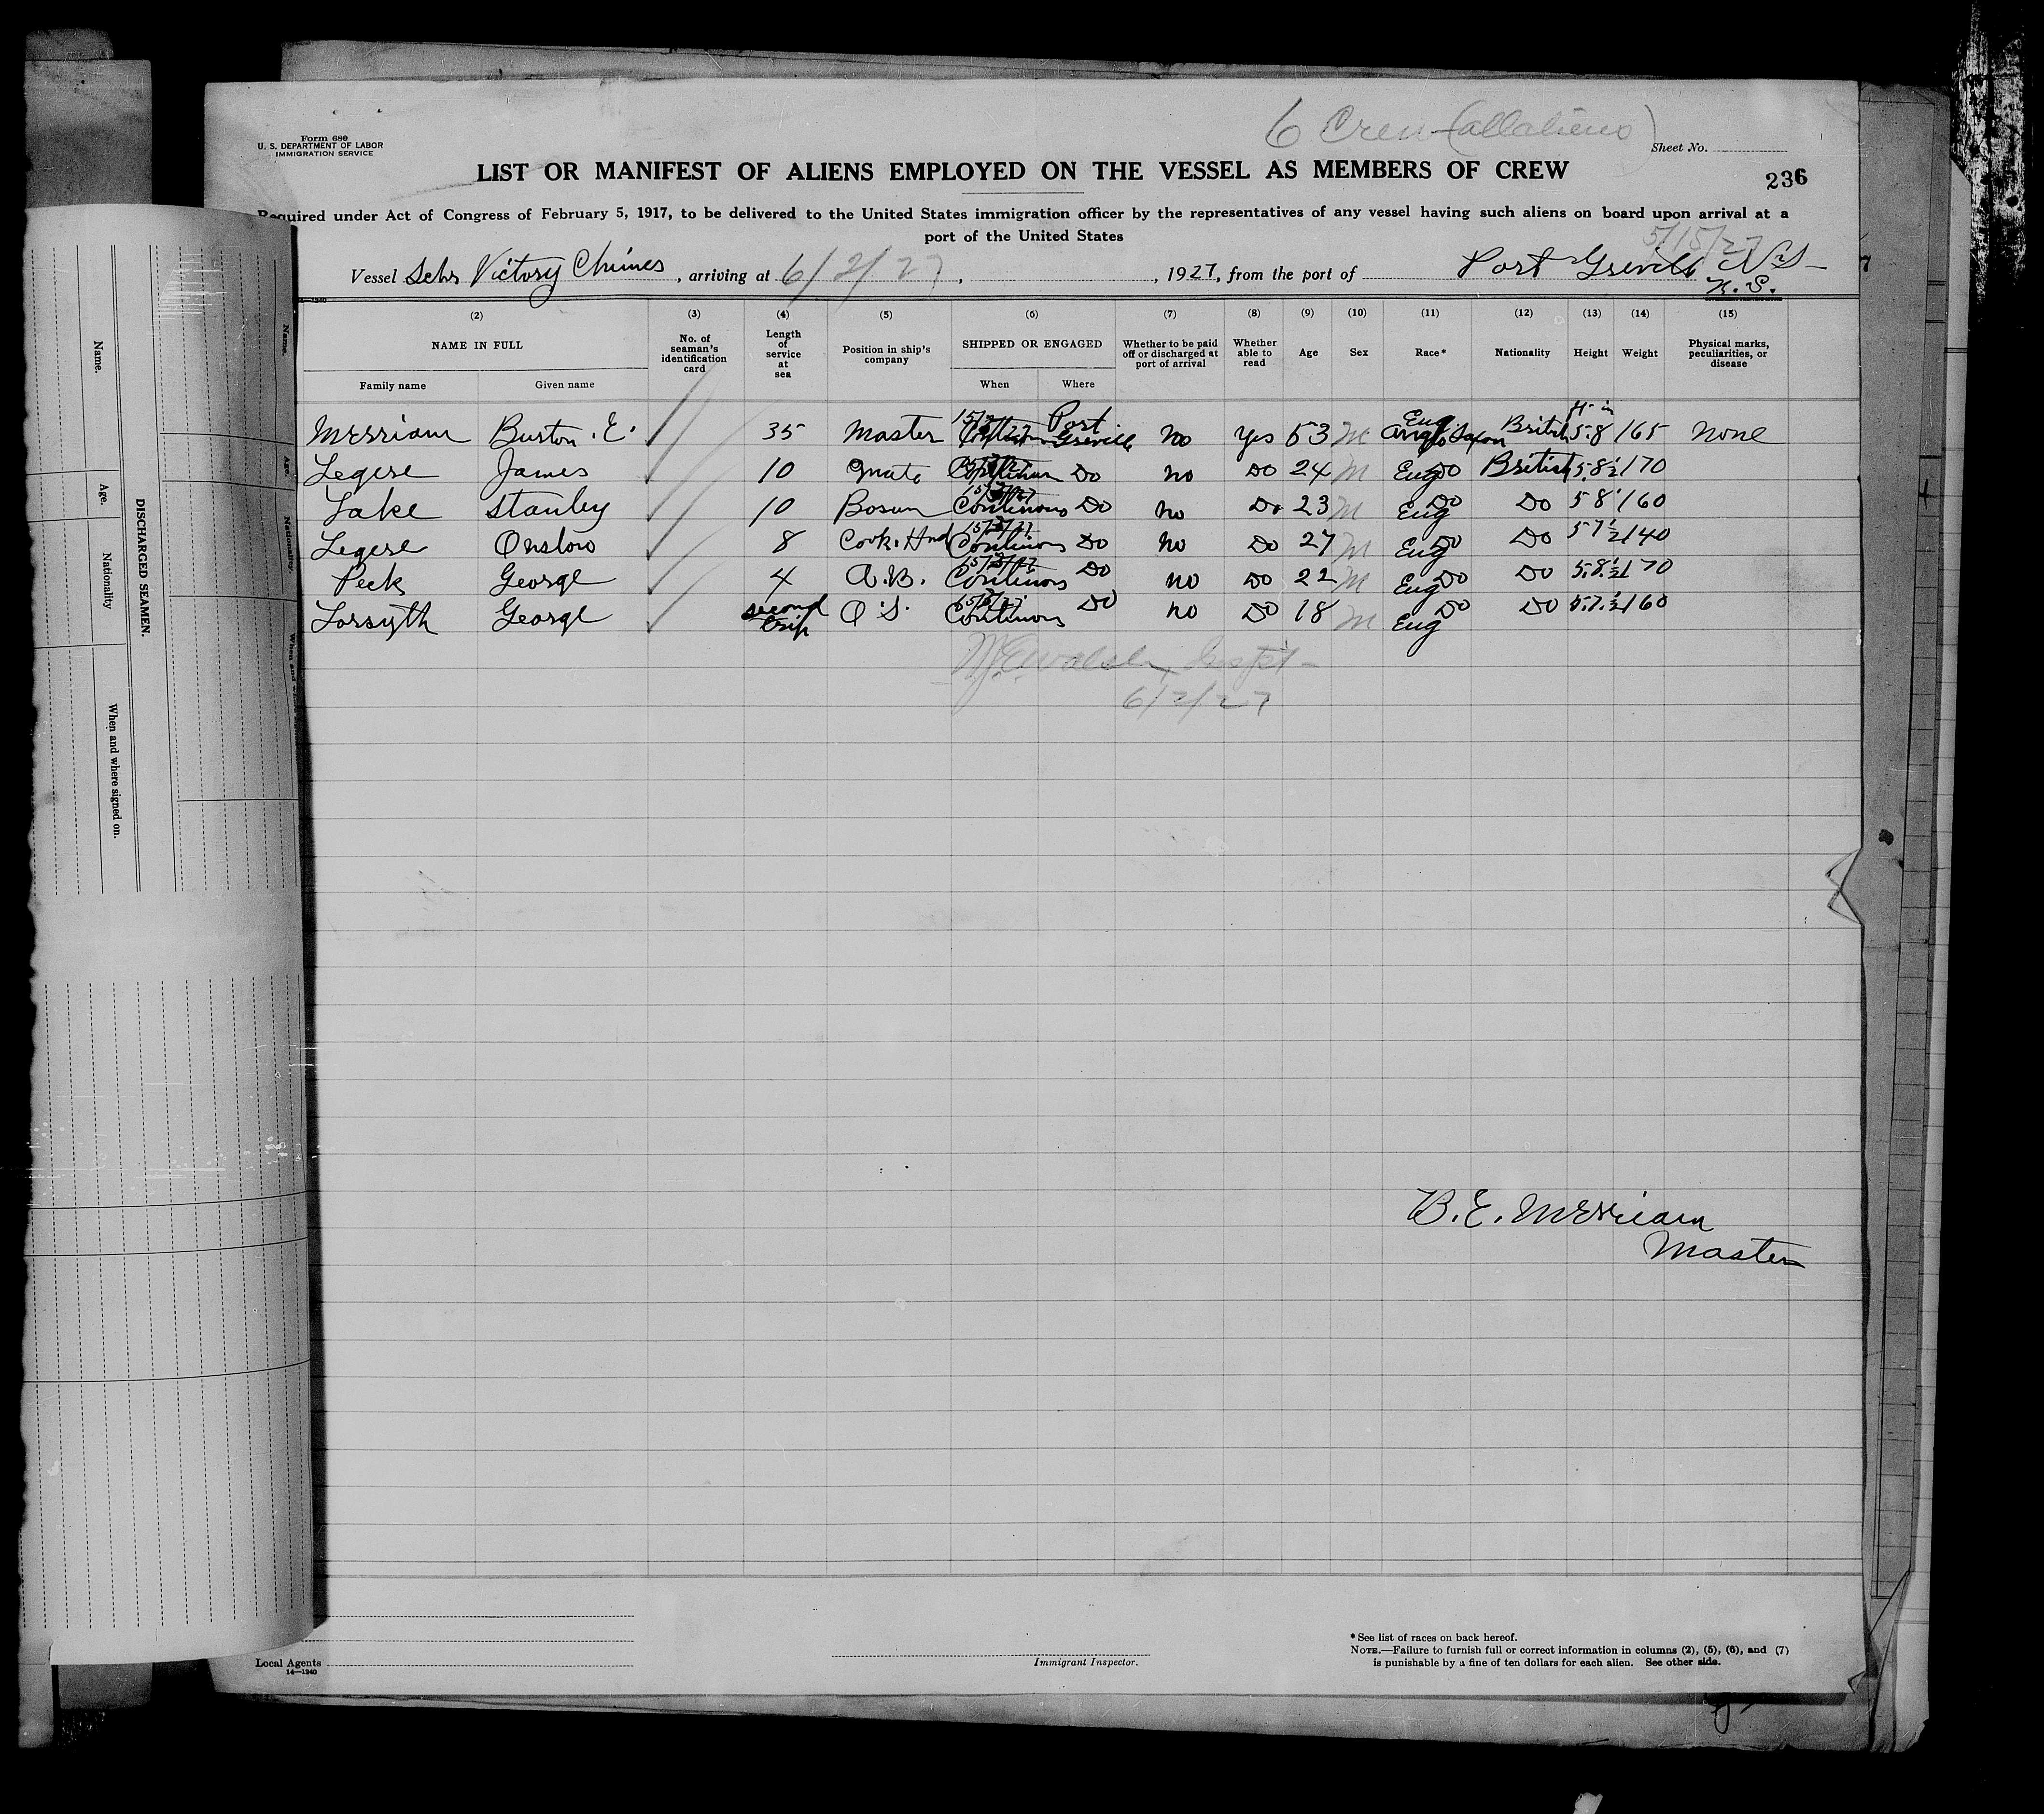 6 Crew (all aliens)
Form 680
U. S. DEPARTMENT OF LABOR
IMMIGRATION SERVICE
Sheet No.
LIST OR MANIFEST OF ALIENS EMPLOYED ON THE VESSEL AS MEMBERS OF CREW
236
Required under Act of Congress of February 5, 1917, to be delivered to the United States immigration officer by the representatives of any vessel having such aliens on board upon arrival at a
port of the United States
5/15/27
Vessel Schr Victory Chimes, arriving at 6/2/27, , 1927, from the port of Port Greville N.S.
N. S.
(2) (3) (4) (5) (6) (7) (8) (9) (10) (11) (12) (13) (14) (15)
NAME IN FULL No. of seaman's identification card Length of service at sea Position in ship's company SHIPPED OR ENGAGED Whether to be paid off or discharged at port of arrival Whether able to read Age Sex Race* Nationality Height Weight Physical marks, peculiarities, or disease
Family name Given name When Where
Merriam Burton . E. 35 Master Port Greville no yes 53 M Eng Anglo Saxon British ft in 5.8 165 none
Legere James 10 Mate Do no Do 24 M Eng Do British 5.8½ 170
Lake Stanley 10 Bosun Continous Do no Do 23 M Eng Do Do 5 8 160
Legere Onslow 8 Cook. Hnd Continous Do no Do 27 M Eng Do Do 5 7½ 140
Peck George 4 A.B. Continous Do no Do 22 M Eng Do Do 5.8.½ 170
Forsyth George second trip O.S. Continous Do no Do 18 M Eng Do Do 5.7.½ 160
Walsh Inspt
6/2/27
B. E. Merriam
Master
*See list of races on back hereof.
NOTE.—Failure to furnish full or correct information in columns (2), (5), (6), and (7)
is punishable by a fine of ten dollars for each alien. See other side.
Local Agents
14—1240
Immigrant Inspector.
DISCHARGED SEAMEN.
Name.
Age.
Nationality
When and where signed on.
Name.
Age.
Nationality.